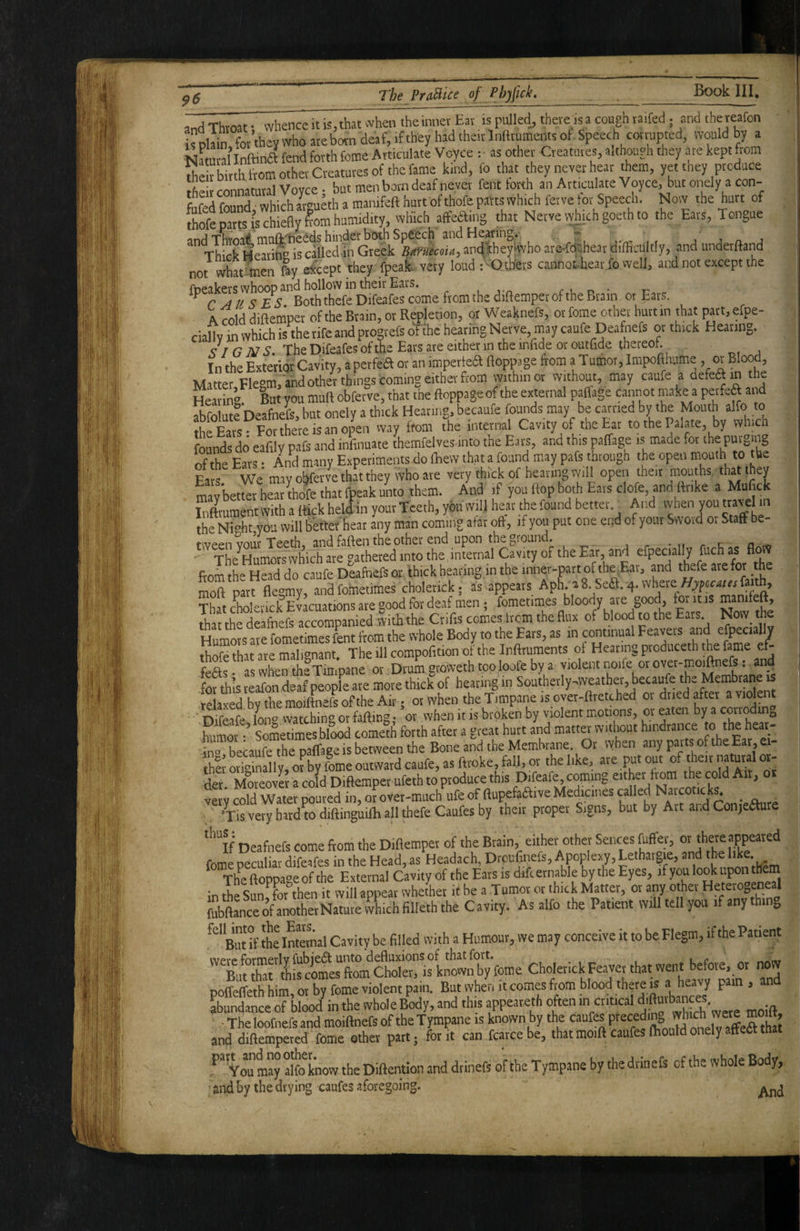 96 The Practice of Phyſick. Book III.
and Throat; whence it is, that when the inner Ear is pulled, there is a cough raiſed; and the reaſon
is plain, for they who are born deaf, if they had their Inſtruments of Speech corrupted, would by a
Natural Inſtinct ſend forth ſome Articulate Voyce: as other Creatures, although they are kept from
their birth from other Creatures of the ſame kind, ſo that they never hear them, yet they produce
their connatural Voyce; but men born deaf never ſent forth an Articulate Voyce, but onely a con-
fuſed ſound, which argueth a manifeſt hurt of thoſe parts which ſerve for Speech. Now the hurt of
thoſe parts is chiefly from humidity, which affecting that Nerve which goeth to the Ears, Tongue
and Throat, muſt needs hinder both Speech and Hearing.
Thick Hearing is called in Greek and they who are ſo, hear difficultly, and underſtand
not what men ſay except they ſpeak very loud: Others cannot hear ſo well, and not except the
ſpeakers whoop and hollow in their Ears.
CAUSES. Both theſe Diſeaſes come from the diſtemper of the Brain or Ears.
A cold diſtemper of the Brain, or Repletion, or Weakneſs, or ſome other hurt in that part, eſpe-
cially in which is the riſe and progreſs of the hearing Nerve, may cauſe Deafneſs or thick Hearing.
SIGNS. The Diſeaſes of the Ears are either in the inſide or outſide thereof.
In the Exterior Cavity, a perfect or an imperfect ſtoppage from a Tumor, Impoſthume, or Blood,
Matter, Flegm, and other things coming either from within or without, may cauſe a defect in the
Hearing. But you muſt obſerve, that the ſtoppage of the external paſſage cannot make a perfect and
abſolute Deafneſs, but onely a thick Hearing, becauſe ſounds may be carried by the Mouth alſo to
the Ears: For there is an open way from the internal Cavity of the Ear to the Palate, by which
ſounds do eaſily paſs and inſinuate themſelves into the Ears, and this paſſage is made for the purging
of the Ears: And many Experiments do ſhew that a ſound may paſs through the open mouth to the
Ears. We may obſerve that they who are very thick of hearing will open their mouths that they
may better hear thoſe that ſpeak unto them. And if you ſtop both Ears cloſe, and ſtrike a Muſick
Inſtrument with a ſtick held in your Teeth, you will hear the ſound better. And when you travel in
the Night, you will better hear any man coming afar off, if you put one end of your Sword or Staff be-
tween your Teeth, and faſten the other end upon the ground.
The Humors which are gathered into the internal Cavity of the Ear, and eſpecially ſuch as flow
from the Head do cauſe Deafneſs or thick hearing in the inner-part of the Ear, and theſe are for the
moſt part flegmy, and ſometimes cholerick; as appears Aph. 28. Sect. 4. where Hypocates ſaith,
That cholerick Evacuations are good for deaf men; ſometimes bloody are good, for it is manifeſt,
that the deafneſs accompanied with the Criſis comes from the flux of blood to the Ears. Now the
Humors are ſometimes ſent from the whole Body to the Ears, as in continual Feavers and eſpecially
thoſe that are malignant. The ill compoſition of the Inſtruments of Hearing produceth the ſame ef-
fects: as when the Timpane or Drum groweth too looſe by a violent noiſe or over-moiſtneſs: and
for this reaſon deaf people are more thick of hearing in Southerly-weather, becauſe the Membrane is
relaxed by the moiſtneſs of the Air; or when the Timpane is over-ſtretched or dried after a violent
Diſeaſe, long watching or faſting; or when it is broken by violent motions, or eaten by a corroding
humor: Sometimes blood cometh forth after a great hurt and matter without hindrance to the hear-
ing, becauſe the paſſage is between the Bone and the Membrane. Or when any parts of the Ear, ei-
ther originally, or by ſome outward cauſe, as ſtroke, fall, or the like, are put out of their natural or-
der. Moreover a cold Diſtemper uſeth to produce this Diſeaſe, coming either from the cold Air, or
very cold Water poured in, or over-much uſe of ſtupefactive Medicines called Narcoticks.
'Tis very hard to diſtinguiſh all theſe Cauſes by their proper Signs, but by Art and Conjecture
thus.
If Deafneſs come from the Diſtemper of the Brain, either other Sences ſuffer, or there appeared
ſome peculiar diſeaſes in the Head, as Headach, Drouſineſs, Apoplexy, Lethargie, and the like.
The ſtoppage of the External Cavity of the Ears is diſcernable by the Eyes, if you look upon them
in the Sun, for then it will appear whether it be a Tumor or thick Matter, or any other Heterogeneal
ſubſtance of another Nature which filleth the Cavity. As alſo the Patient will tell you if any thing
fell into the Ears.
But if the Internal Cavity be filled with a Humour, we may conceive it to be Flegm, if the Patient
were formerly ſubject unto defluxions of that ſort.
But that this comes from Choler, is known by ſome Cholerick Feaver that went before, or now
poſſeſſeth him, or by ſome violent pain. But when it comes from blood there is a heavy pain, and
abundance of blood in the whole Body, and this appeareth often in critical diſturbances.
The looſneſs and moiſtneſs of the Tympane is known by the cauſes preceding which were moiſt,
and diſtempered ſome other part; for it can ſcarce be, that moiſt cauſes ſhould onely affect that
part and no other.
You may alſo know the Diſtention and drineſs of the Tympane by the drineſs of the whole Body,
and by the drying cauſes aforegoing.
And